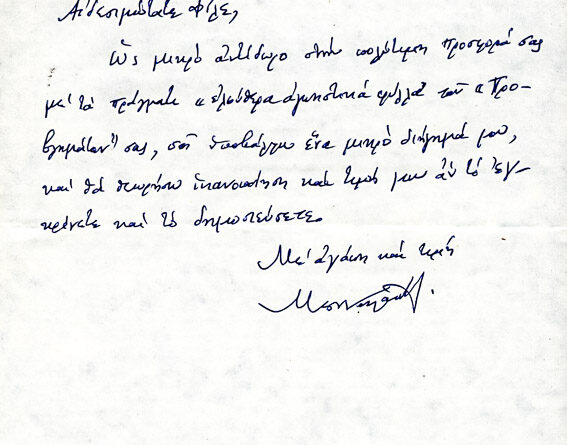 Αἰδεσιμώτατε Φίλε,
Ὡς μικρό ἀντίδωρο στήν πολύτιμη προσφορά σας
μέ τά πράγματι «ἐλεύθερα ἀγωνιστικά φύλλα τοῦ «Προ-
βλημάτων» σας, σᾶς ὑποβάλλω ἕνα μικρό διήγημά μου,
καί θά θεωρήσω ἱκανοποίηση καί τιμή μου ἄν τό ἐγ-
κρίνετε καί τό δημοσιεύσετε.
Μέ ἀγάπη καί τιμή